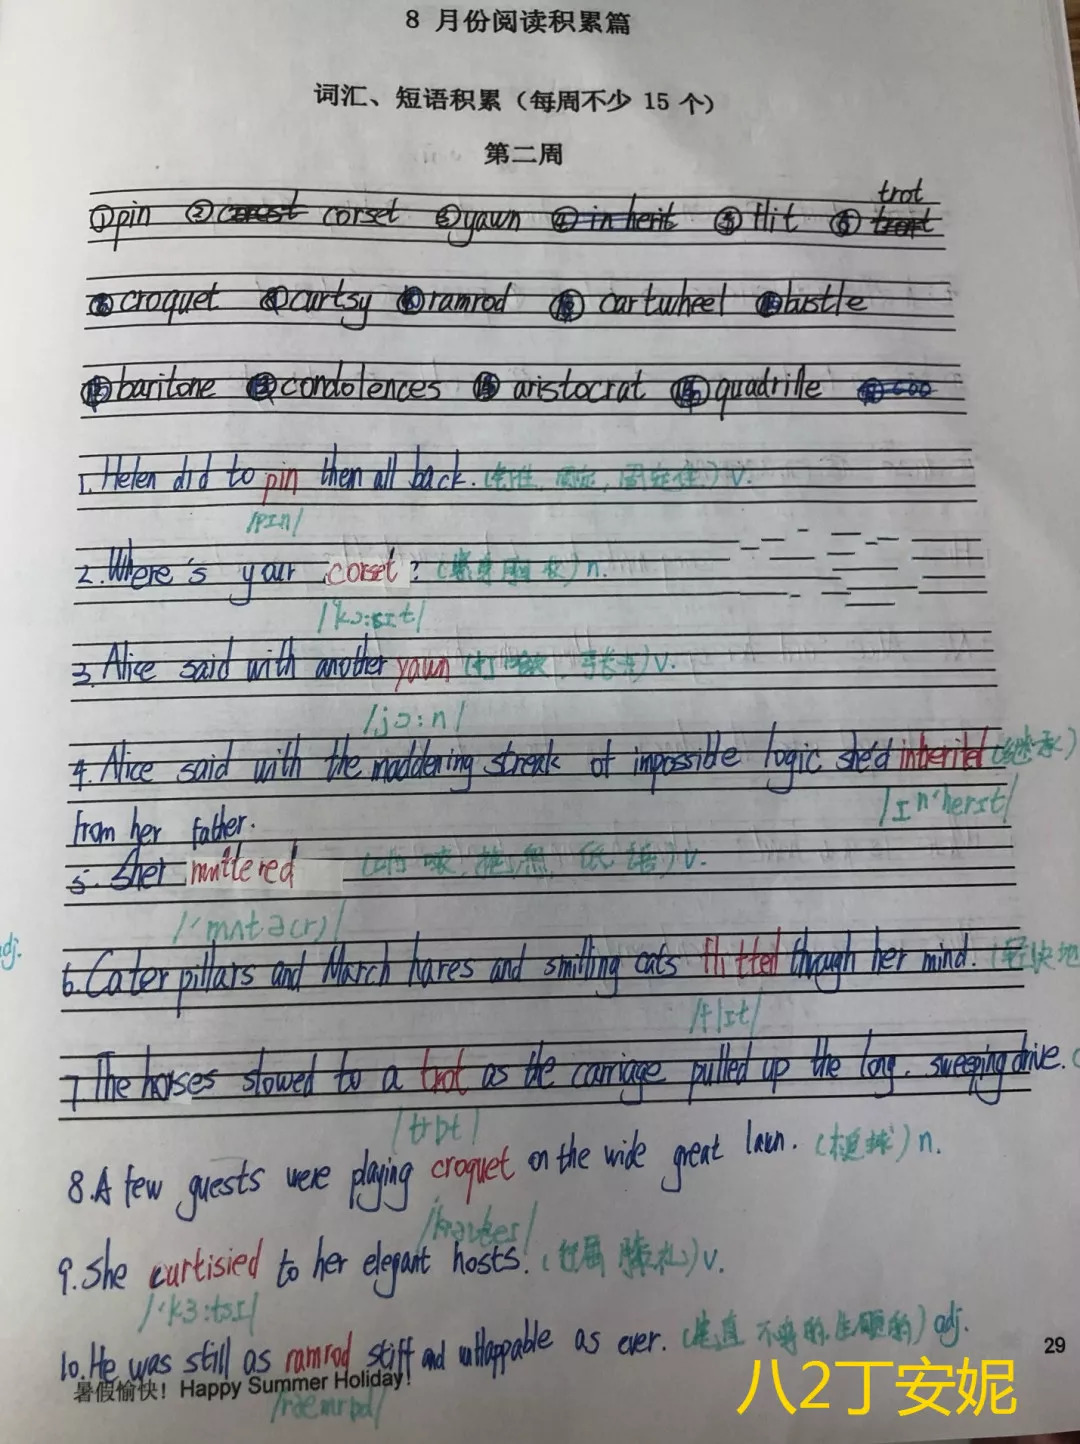 8 月份阅读积累篇
词汇、短语积累（每周不少 15 个）
第二周
trot
①pin ② corset ③yawn ④ inherit ⑤ flit ⑥
croquet curtsy ramrod cartwheel bustle
baritone condolences aristocrat quadrille
1. Helen did to pin them all back. 固定, 固定住) v.
/pɪn/
2. Where's your corset? (紧身胸衣) n.
/ˈkɔ:sɪt/
3. Alice said with another yawn (打哈欠, ) v.
/jɔ:n/
4. Alice said with the maddening streak of impossible logic she'd inherited (继承)
/ɪnˈherɪt/
from her father.
5. Sher muttered v.
/ˈmʌt.ə(r)/
adj.
6. Caterpillars and March hares and smilling cats flitted though her mind. (轻快地
/flɪt/
7 The horses slowed to a trot as the carriage pulled up the long, sweeping drive. (
/trɒt/
8. A few guests were playing croquet on the wide great lawn. (槌球) n.
9. She curtisied to her elegant hosts. 屈膝礼) v.
/ˈkɜ:tsɪ/
10. He was still as ramrod stiff and unflappable as ever. 生硬的) adj.
29
暑假愉快！Happy Summer Holiday!
八2丁安妮